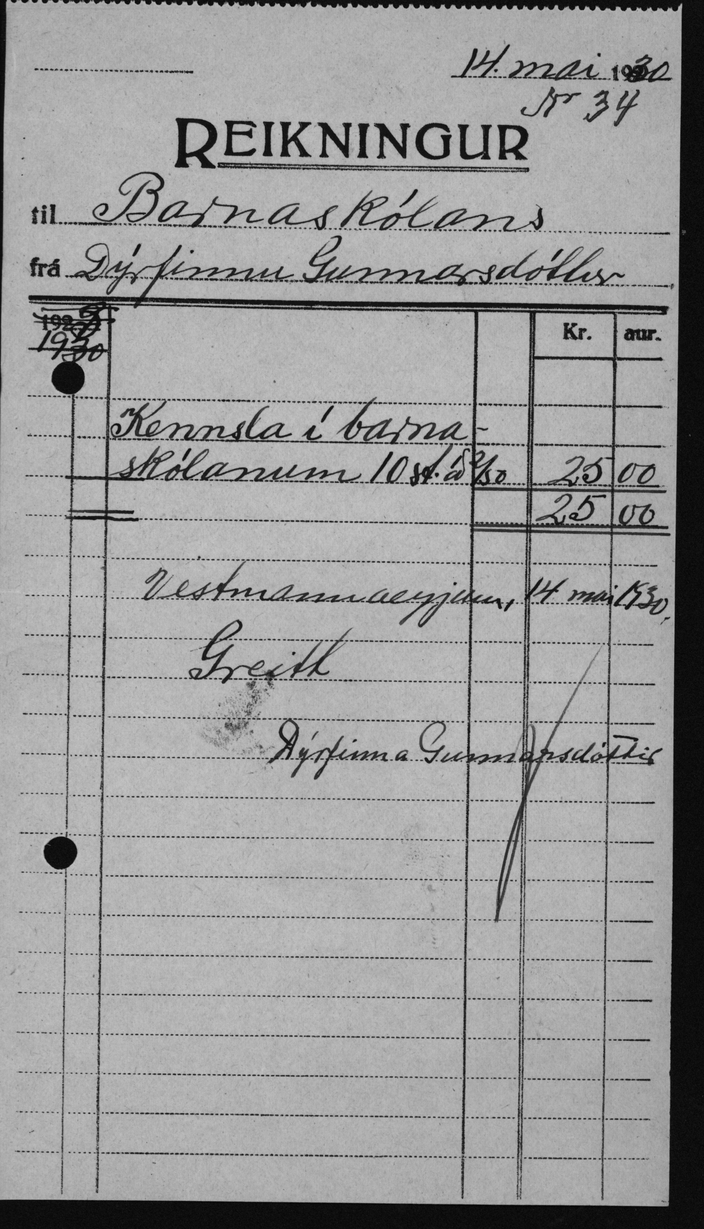 14. mai 1930
Nr 34
REIKNINGUR
til Barnaskólans
frá Dýrfinnu Gunnarsdóttur
1930
Kr. aur.
Kennsla í barna-
skólanum 10 st. á 2/50 25 00
25 00
Vestmannaeyjum, 14 mai 1930.
Greitt
Dýrfinna Gunnarsdóttir